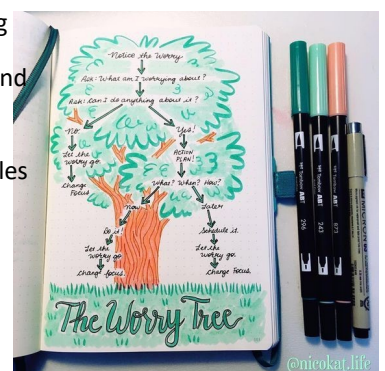 g
nd
les
Notice the Worry.
Ask: What am I worrying about?
Ask: Can I do anything about it?
No.
Let the
worry go.
Change
Focus.
Yes!
ACTION
PLAN!
What? When? How?
Now
Do it!
Let the
worry go.
Change focus.
Later
Schedule it.
Let the
worry go.
Change Focus.
The Worry Tree
Tombow ABT
296
Tombow ABT
243
Tombow ABT
873
MICRON
@nicokat.life